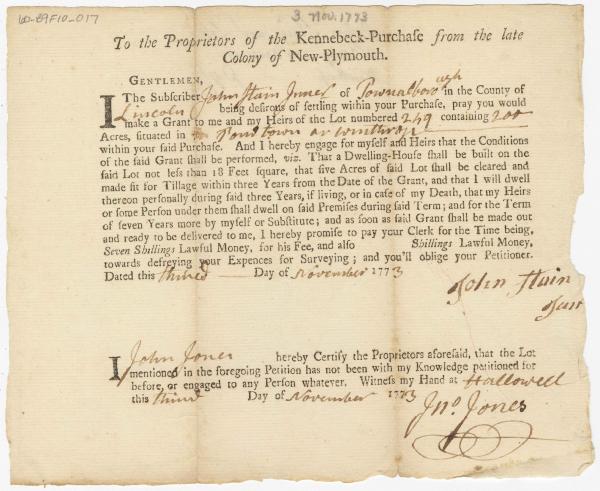 LD-89F10-017
3. Nov. 1773
To the Proprietors of the Kennebeck-Purchase from the late
Colony of New-Plymouth.
GENTLEMEN,
The Subscriber John Stain Juner of Pownalborough in the County of
Lincoln being desirous of settling within your Purchase, pray you would
make a Grant to me and my Heirs of the Lot numbered 249 containing 200
Acres, situated in Pond town or Winthrop
within your said Purchase. And I hereby engage for myself and Heirs that the Conditions
of the said Grant shall be performed, viz. That a Dwelling-House shall be built on the
said Lot not less than 18 Feet square, that five Acres of said Lot shall be cleared and
made fit for Tillage within three Years from the Date of the Grant, and that I will dwell
thereon personally during said three Years, if living, or in case of my Death, that my Heirs
or some Person under them shall dwell on said Premises during said Term; and for the Term
of seven Years more by myself or Substitute; and as soon as said Grant shall be made out
and ready to be delivered to me, I hereby promise to pay your Clerk for the Time being,
Seven Shillings Lawful Money, for his Fee, and also Shillings Lawful Money,
towards defreying your Expences for Surveying; and you'll oblige your Petitioner.
Dated this thired Day of November 1773
John Stain
Junr
I John Jones hereby Certify the Proprietors aforesaid, that the Lot
mentioned in the foregoing Petition has not been with my Knowledge petitioned for
before, or engaged to any Person whatever. Witness my Hand at Hallowell
this third Day of November 1773
Jno Jones